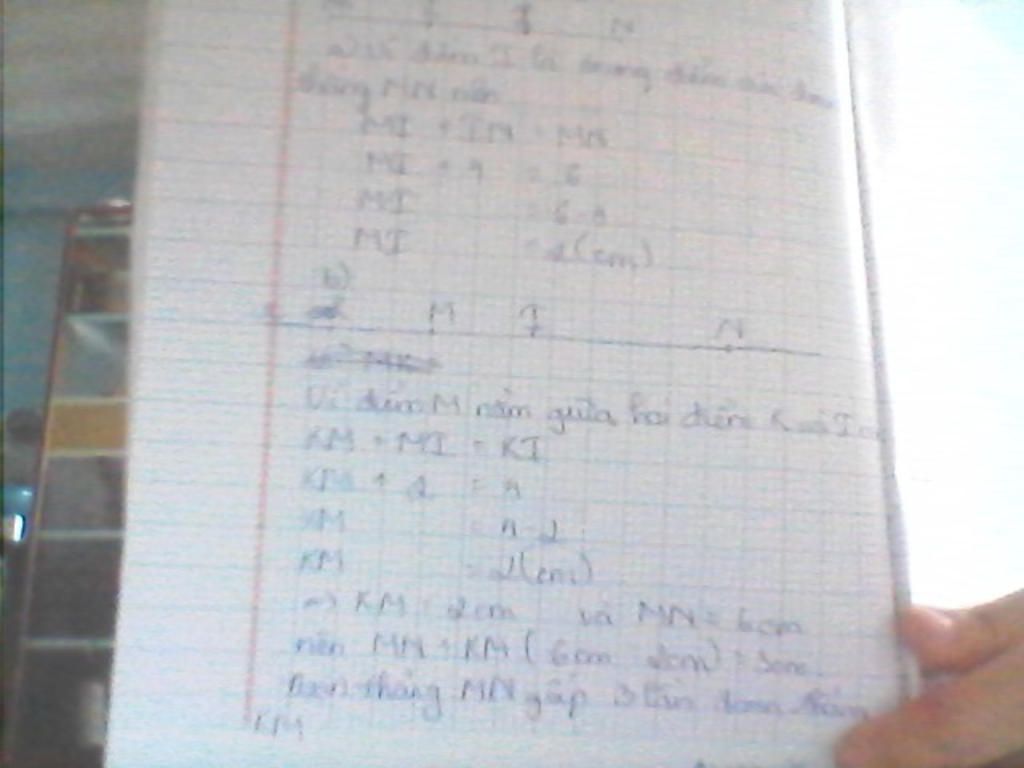 N
a) Vì điểm I là trung điểm của đoạn
thẳng MN nên
MI + IN = MN
MI + 4 = 6
MI = 6 - 4
MI = 2(cm)
b)
M I N
Vì điểm M nằm giữa hai điểm K và I
KM + MI = KI
KM + 2 = 4
KM = 4 - 2
KM = 2(cm)
=> KM = 2cm và MN = 6cm
nên MN : KM ( 6cm : 2cm) = 3cm
Đoạn thẳng MN gấp 3 lần đoạn thẳng
KM